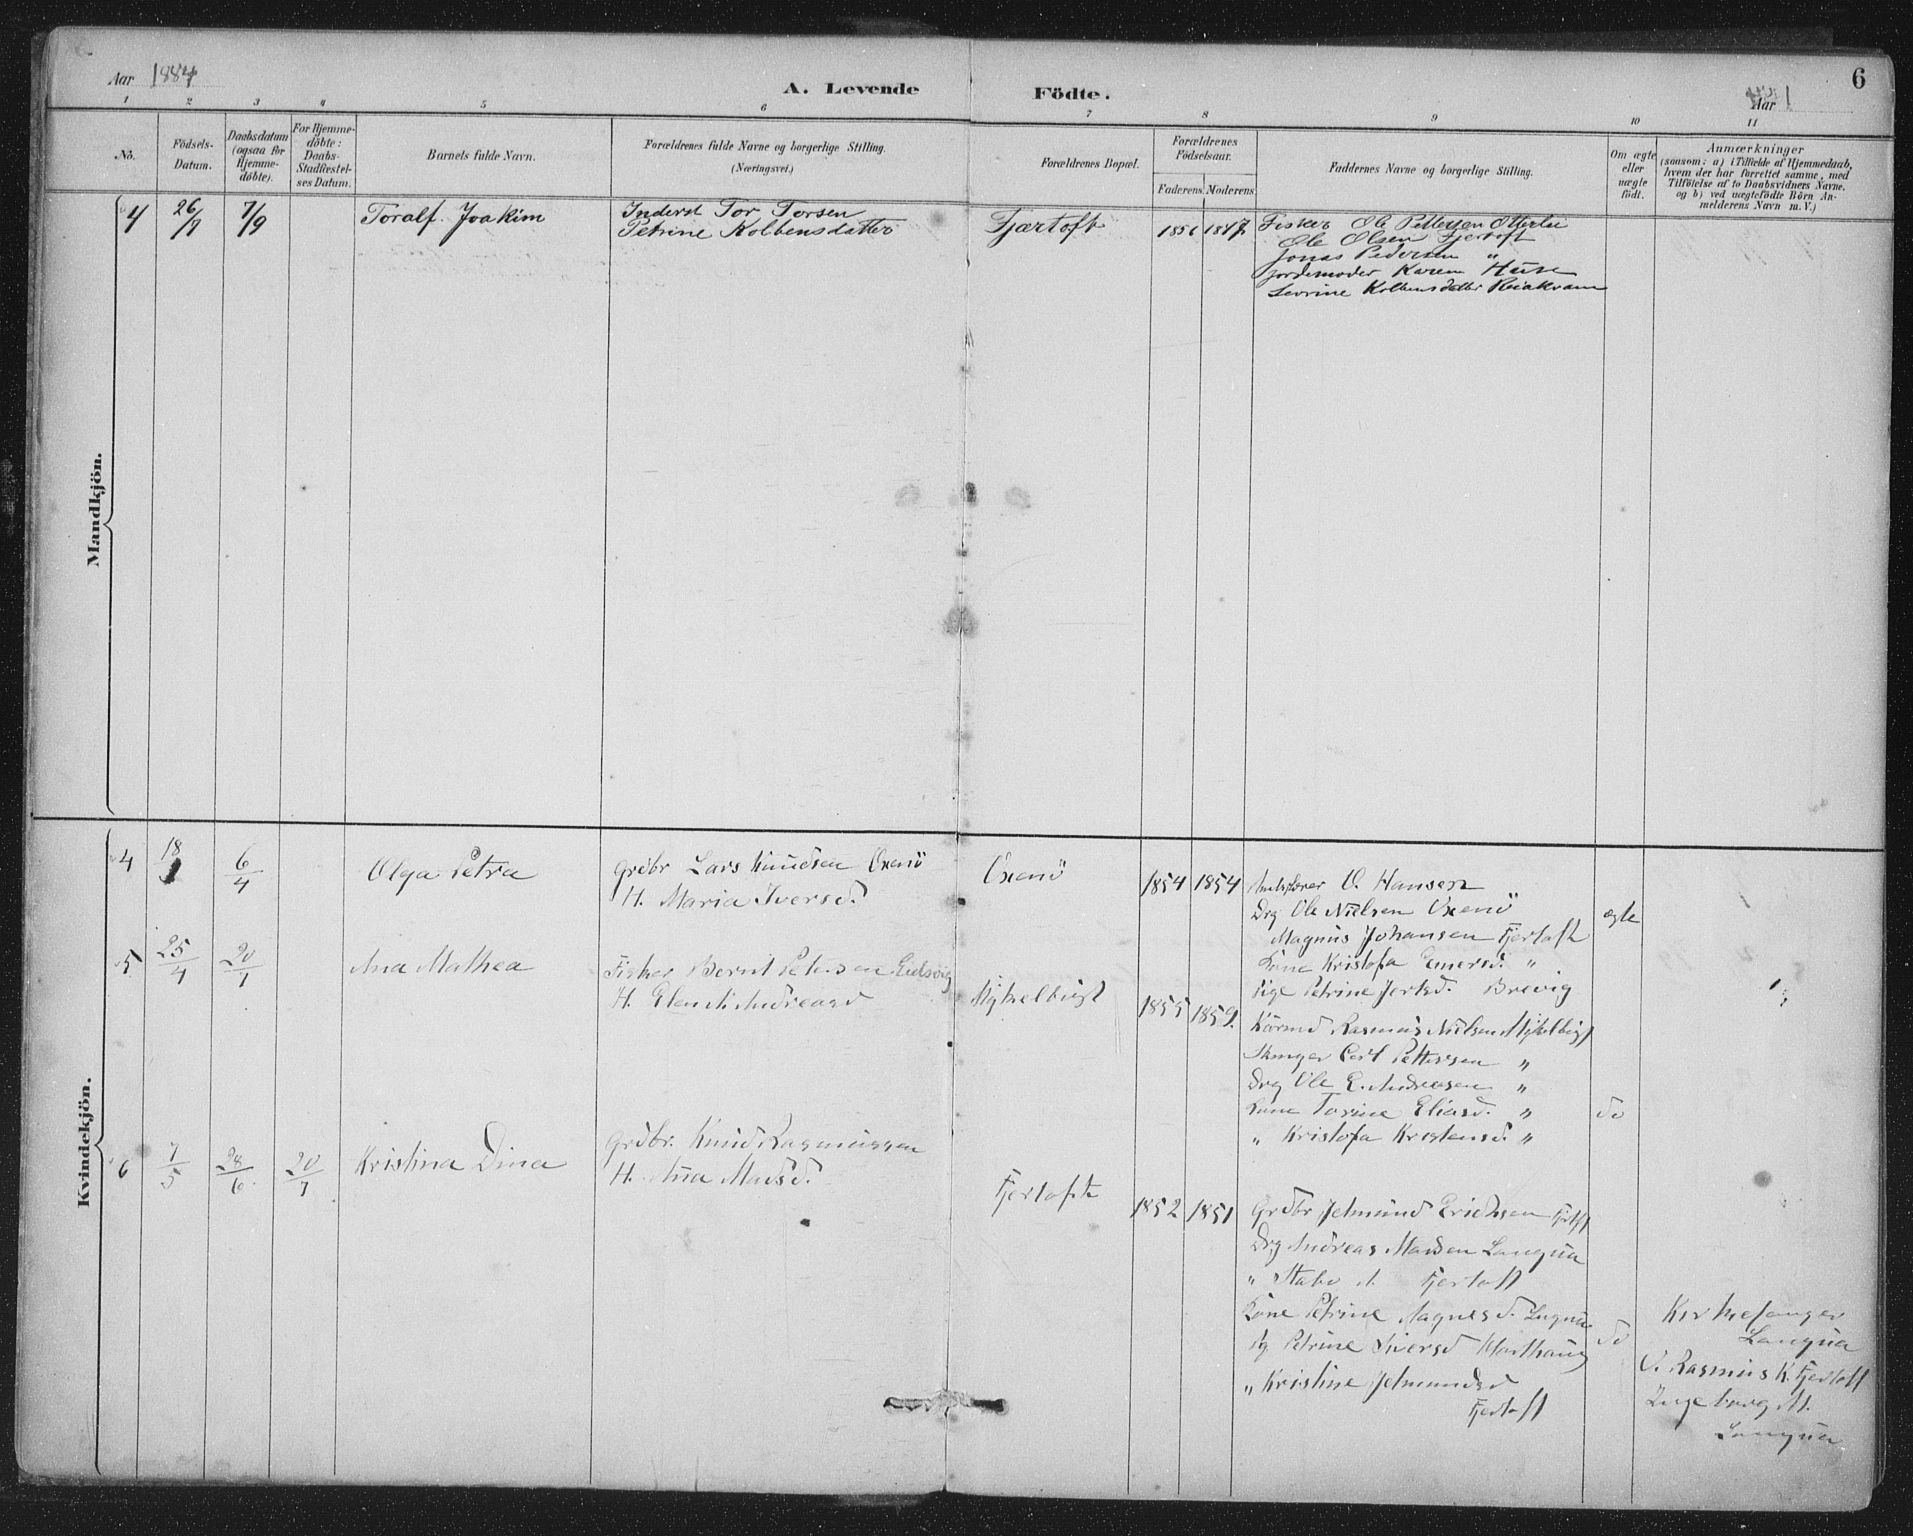 Aar 1884
A. Levende Födte.
Aar
6
1 2 3 4 5 6 7 8 9 10 11
No.
Födsels-Datum.
Daabsdatum (ogsaa för Hjemme-döbte).
For Hjemme-döbte: Daabs-Stadfæstel-ses Datum.
Barnets fulde Navn.
Forældrenes fulde Navne og borgerlige Stilling.
(Næringsvei.)
Forældrenes Bopæl.
Forældrenes Födselsaar.
Faderens. Moderens.
Faddernes Navne og borgerlige Stilling.
Om ægte eller uægte födt.
Anmærkninger
(saasom: a) i Tilfælde af Hjemmedaab, hvem der har forrettet samme, med Tilföielse af to Daabsvidners Navne, og b) ved uægtefödte Börn An-melderens Navn m. V.)
Mandkjön.
4 26/7 7/9 Toralf Joakim
Inderst Tor Torsen
Petrine Kolbensdatter
Fjærtoft 1856 1847
Fisker Ole Pettersen Otterlei
Ole Olsen Fjertoft
Jonas Pedersen "
Jordemoder Karen Huse
Severine Kolbensdatter Reiakvam
Kvindekjön.
4 18 6/4 Olga Petra
Grdbr Lars Knudsen Oxenö
H. Maria Iversd.
Oxenö 1854 1854
O. Hansen "
Drg Ole Nielsen Oxenö
Magnus Johansen Fjertoft
Kone Kristofa Emersd. "
Pige Petrine Brevig
ægte
5 25/4 20/7 Ana Mathea
Fisker Bernt Petersen Eidsvig
H. Andreasd
Mykelbust 1855 1859.
Kaarmd Rasmus Nielsen Mykelbust
Pettersen "
Drg Ole E. Andreasen "
Kone Torine Eliasd. "
" Kristofa Kristensd. "
do
6 7/5 28/6 20/7 Kristina Dina
Grdbr. Knud Rasmussen
H. Ana Madsd.
Fjertoft 1852 1851
Grdbr Jetmund Erichsen Fjertoft
Drg Andreas Madsen Longva
" Fjertoft
Kone Petrine Magnesd. Longva
Pg Petrine Siversd
" Kristine Jetmundsd
Fjertoft
do
Kirkesanger
Longva
O. Rasmus K. Fjertoft
Ingeborg M.
Longva